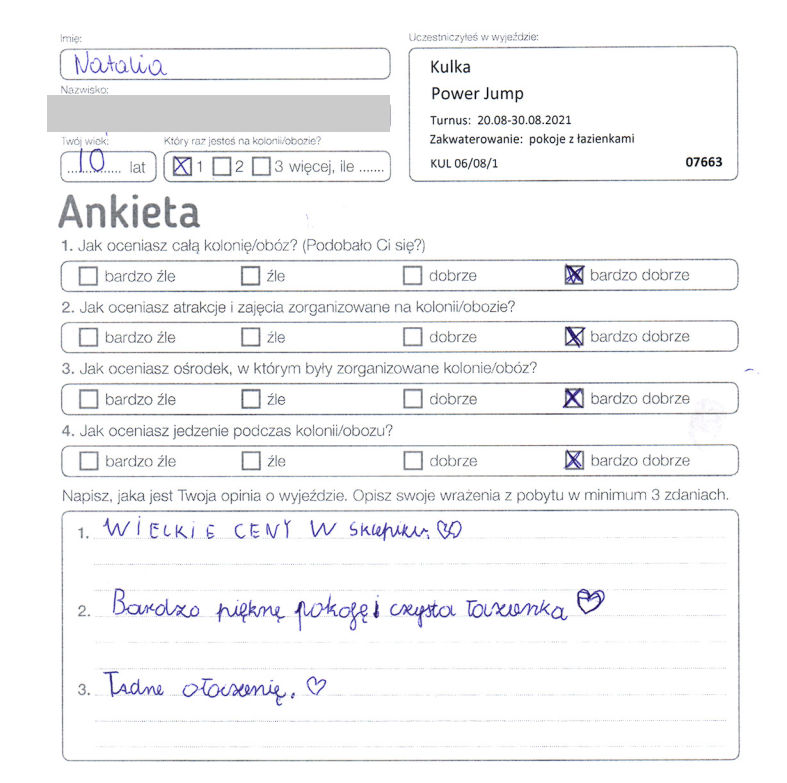 Imię:
Natalia
Nazwisko:
Twój wiek:
10 lat
Który raz jesteś na kolonii/obozie?
1 2 3 więcej, ile .......
Uczestniczyłeś w wyjeździe:
Kulka
Power Jump
Turnus: 20.08-30.08.2021
Zakwaterowanie: pokoje z łazienkami
KUL 06/08/1 07663
Ankieta
1. Jak oceniasz całą kolonię/obóz? (Podobało Ci się?)
bardzo źle źle dobrze bardzo dobrze
2. Jak oceniasz atrakcje i zajęcia zorganizowane na kolonii/obozie?
bardzo źle źle dobrze bardzo dobrze
3. Jak oceniasz ośrodek, w którym były zorganizowane kolonie/obóz?
bardzo źle źle dobrze bardzo dobrze
4. Jak oceniasz jedzenie podczas kolonii/obozu?
bardzo źle źle dobrze bardzo dobrze
Napisz, jaka jest Twoja opinia o wyjeździe. Opisz swoje wrażenia z pobytu w minimum 3 zdaniach.
1. WIELKIE CENY W sklepiku.
2. Bardzo pięknę pokoję i czysta łazienka
3. Ładne otoczenię.